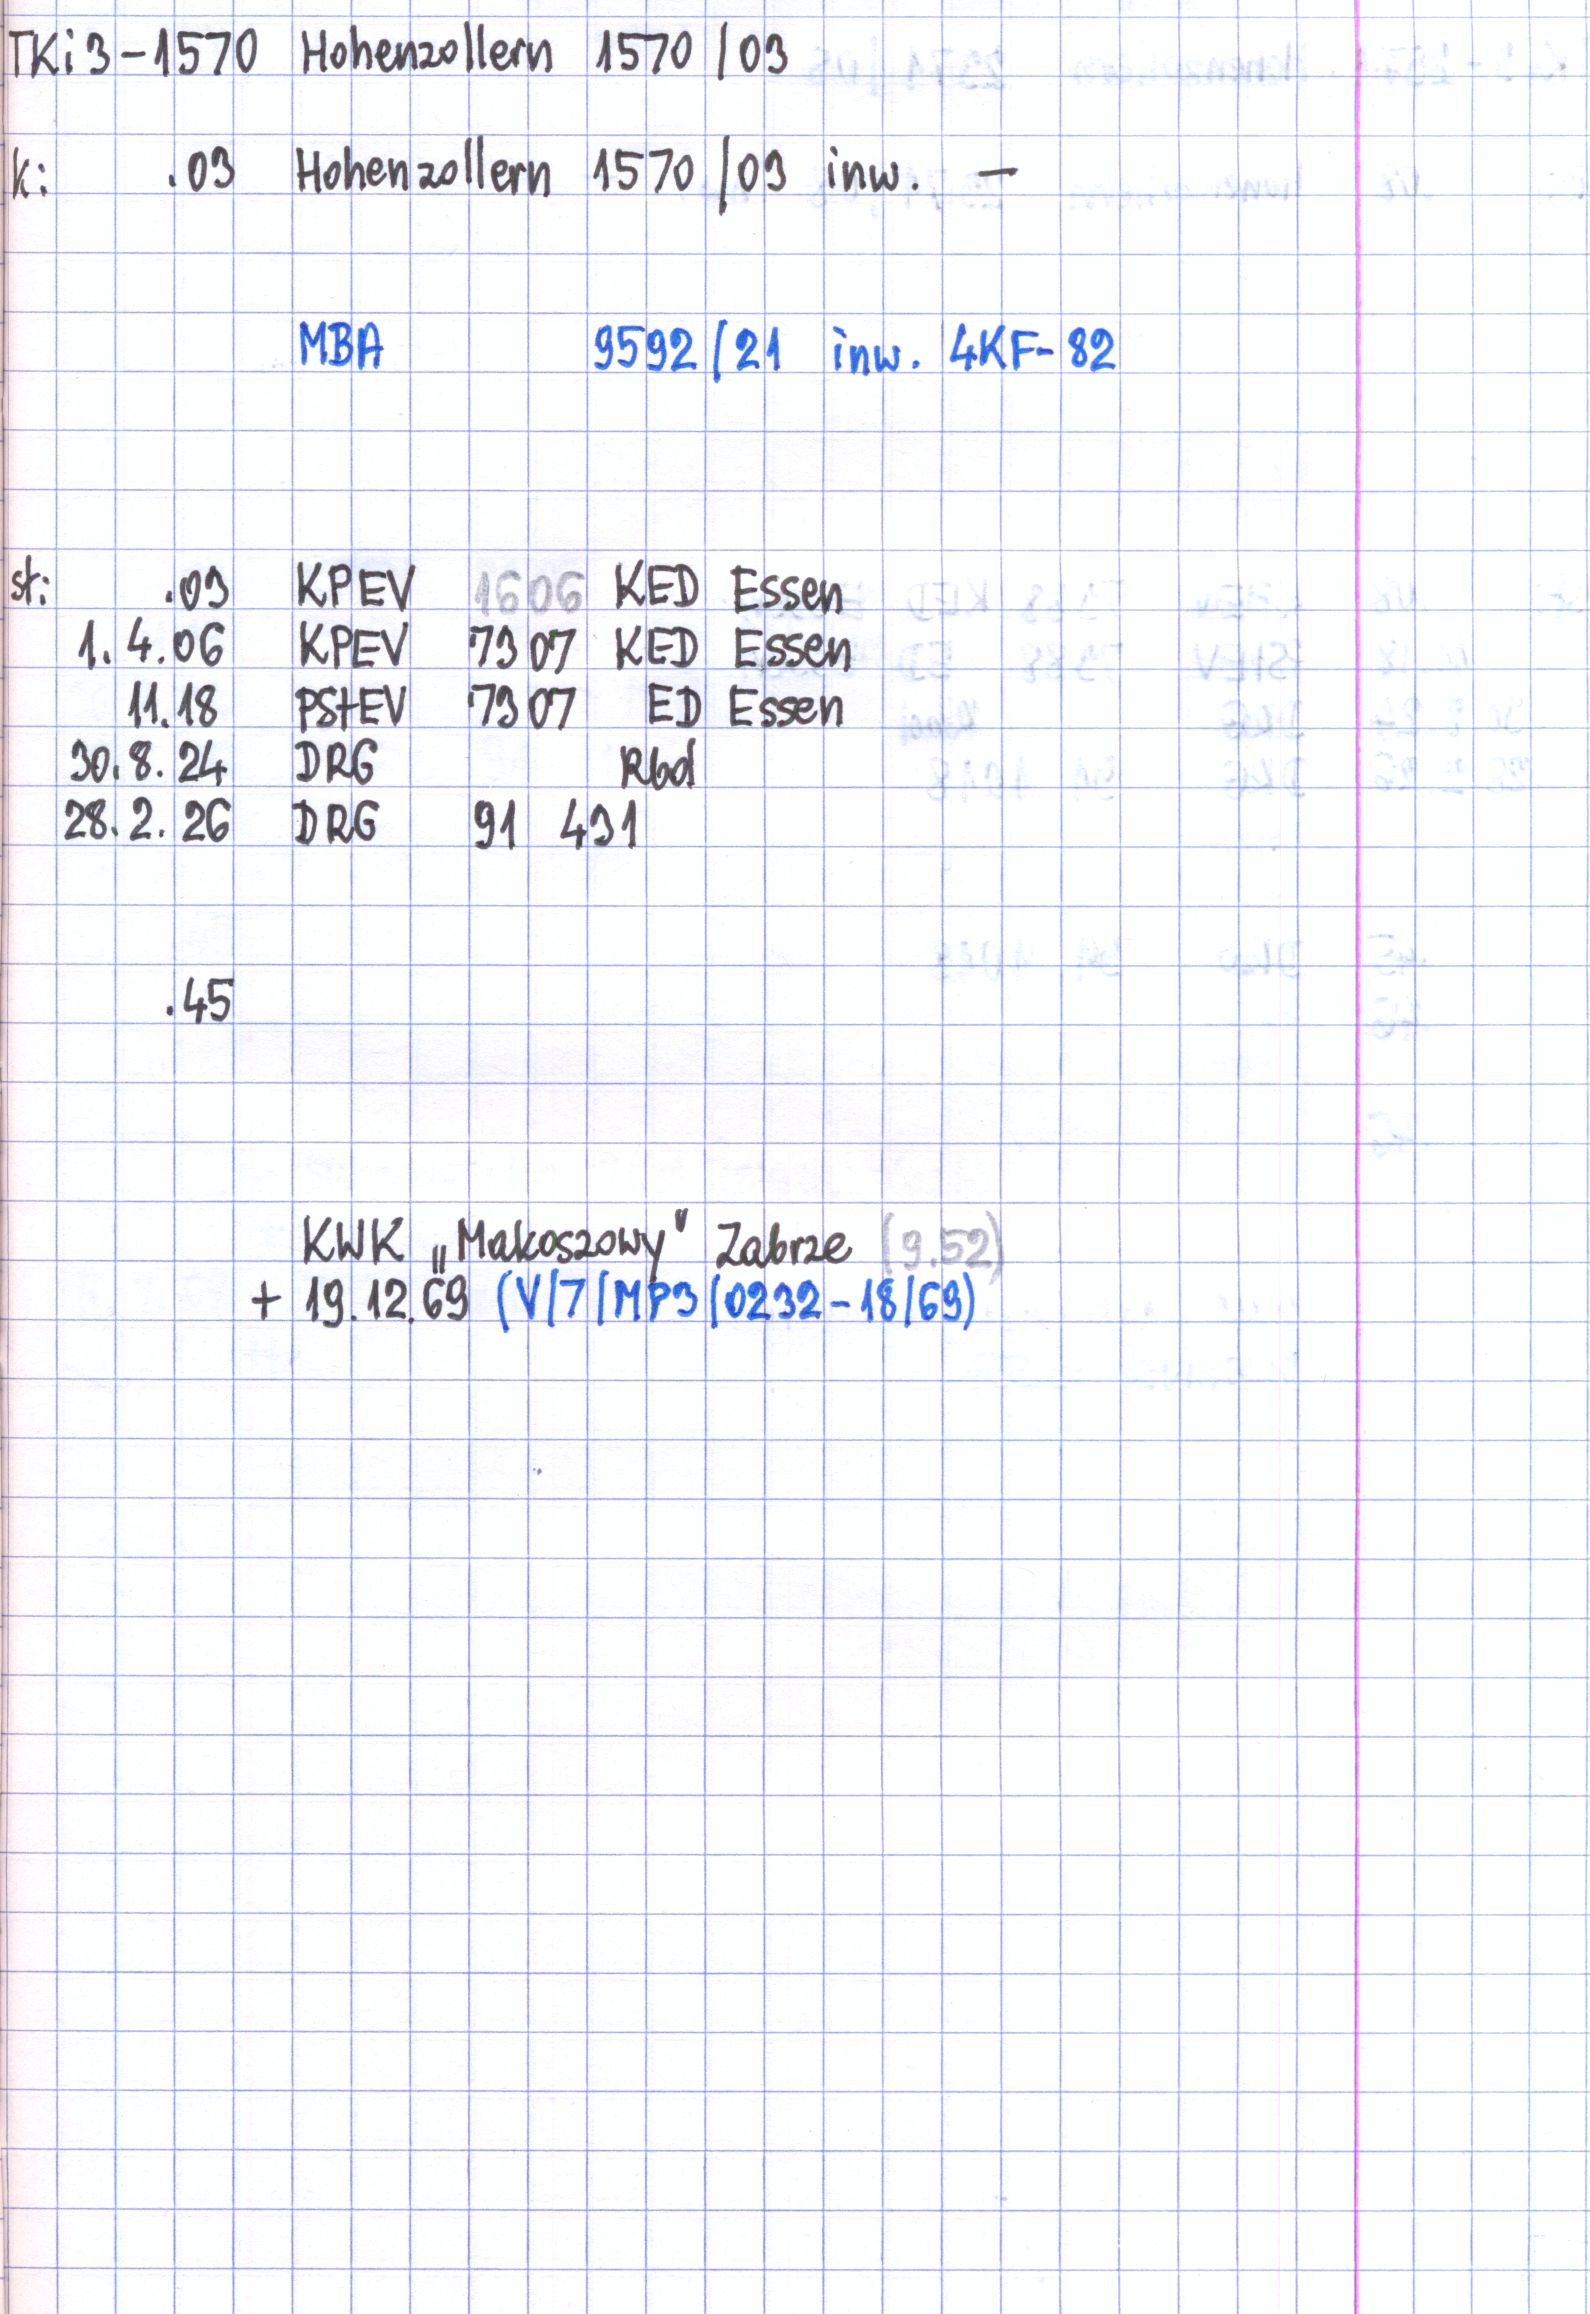 TKi3-1570 Hohenzollern 1570/03
k: .03 Hohenzollern 1570/03 inw. —
MBA 9592/21 inw. 4KF-82
st: .03 KPEV 1606 KED Essen
1.4.06 KPEV 7307 KED Essen
11.18 PStEV 7307 ED Essen
30.8.24 DRG Rbd
28.2.26 DRG 91 431
.45
KWK „Makoszowy" Zabrze (9.52)
+ 19.12.69 (V/7/MP3/0232-18/69)